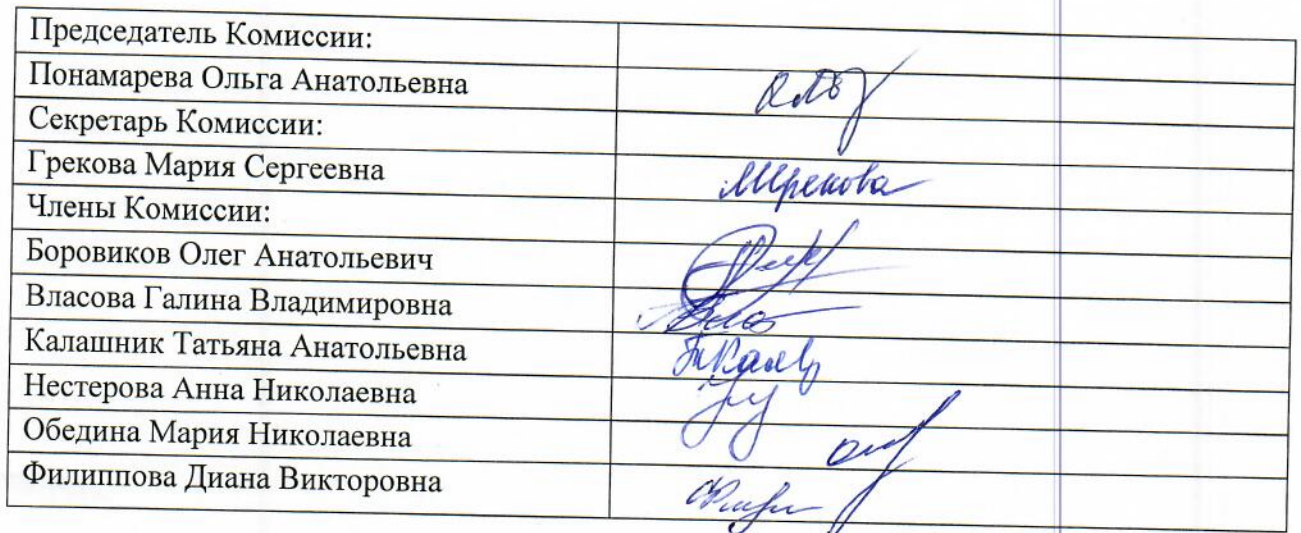 Председатель Комиссии:
Понамарева Ольга Анатольевна
Секретарь Комиссии:
Грекова Мария Сергеевна МГрекова
Члены Комиссии:
Боровиков Олег Анатольевич
Власова Галина Владимировна
Калашник Татьяна Анатольевна
Нестерова Анна Николаевна
Обедина Мария Николаевна
Филиппова Диана Викторовна